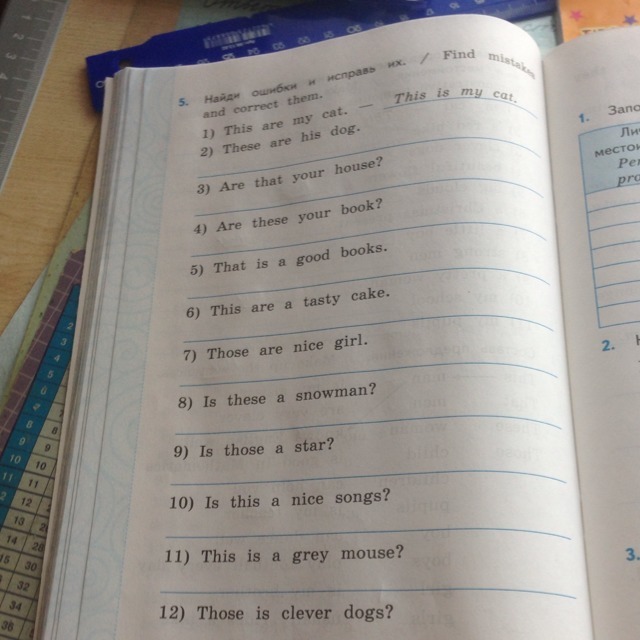 5. Найди ошибки и исправь их. / Find mistakes
and correct them.
1) This are my cat. — This is my cat.
2) These are his dog.
3) Are that your house?
4) Are these your book?
5) That is a good books.
6) This are a tasty cake.
7) Those are nice girl.
8) Is these a snowman?
9) Is those a star?
10) Is this a nice songs?
11) This is a grey mouse?
12) Those is clever dogs?
1.
2.
3.